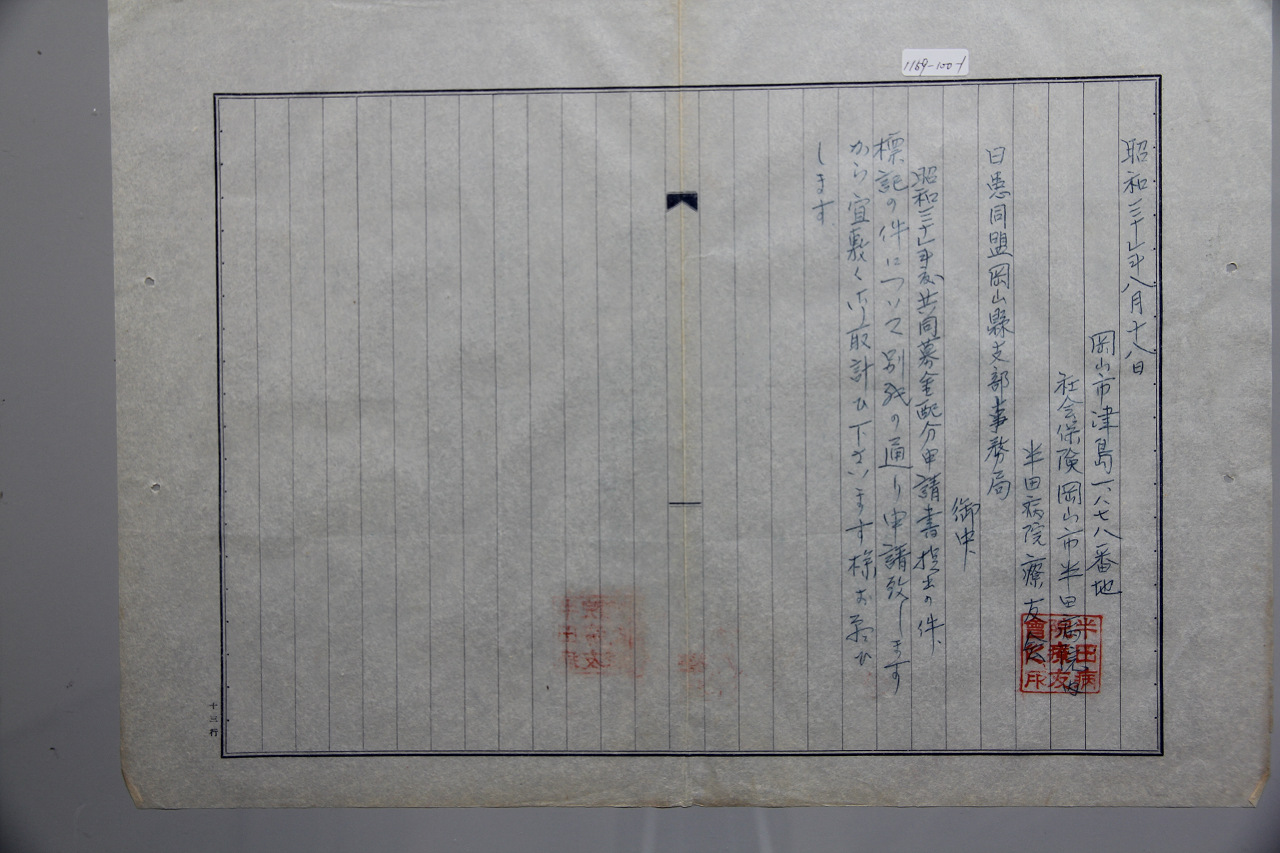 1169-100-1
昭和三十一年八月十八日
岡山市津島一八七八番地
社会保険岡山市半田病院内
半田病院療友会
半田病院療友會之印
日患同盟岡山縣支部事務局
御中、
昭和三十一年度共同募金配分申請書提出の件、
標記の件について別紙の通り申請致します
から宜敷く御取計ひ下さいます様お願ひ
します
十三行